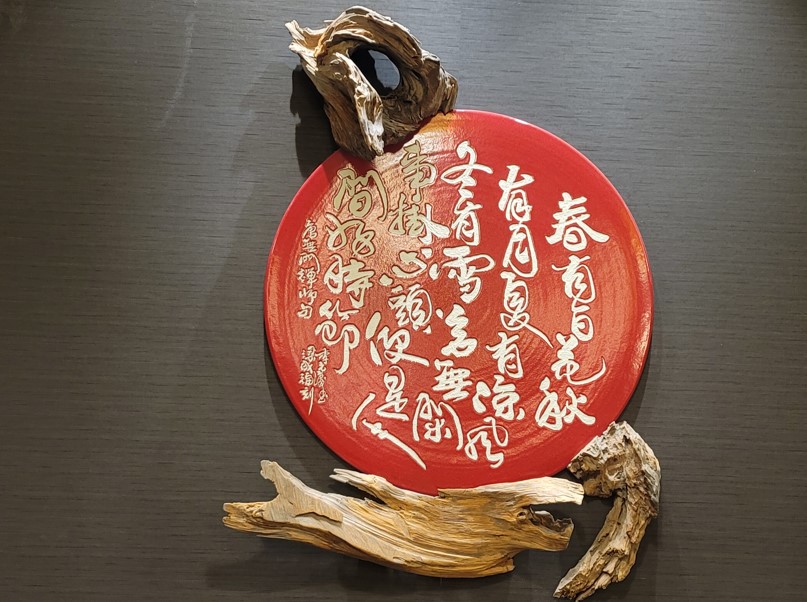 春有百花秋
有月夏有涼風
冬有雪若無閑
事掛心頭便是人
間好時節
無門禪師句